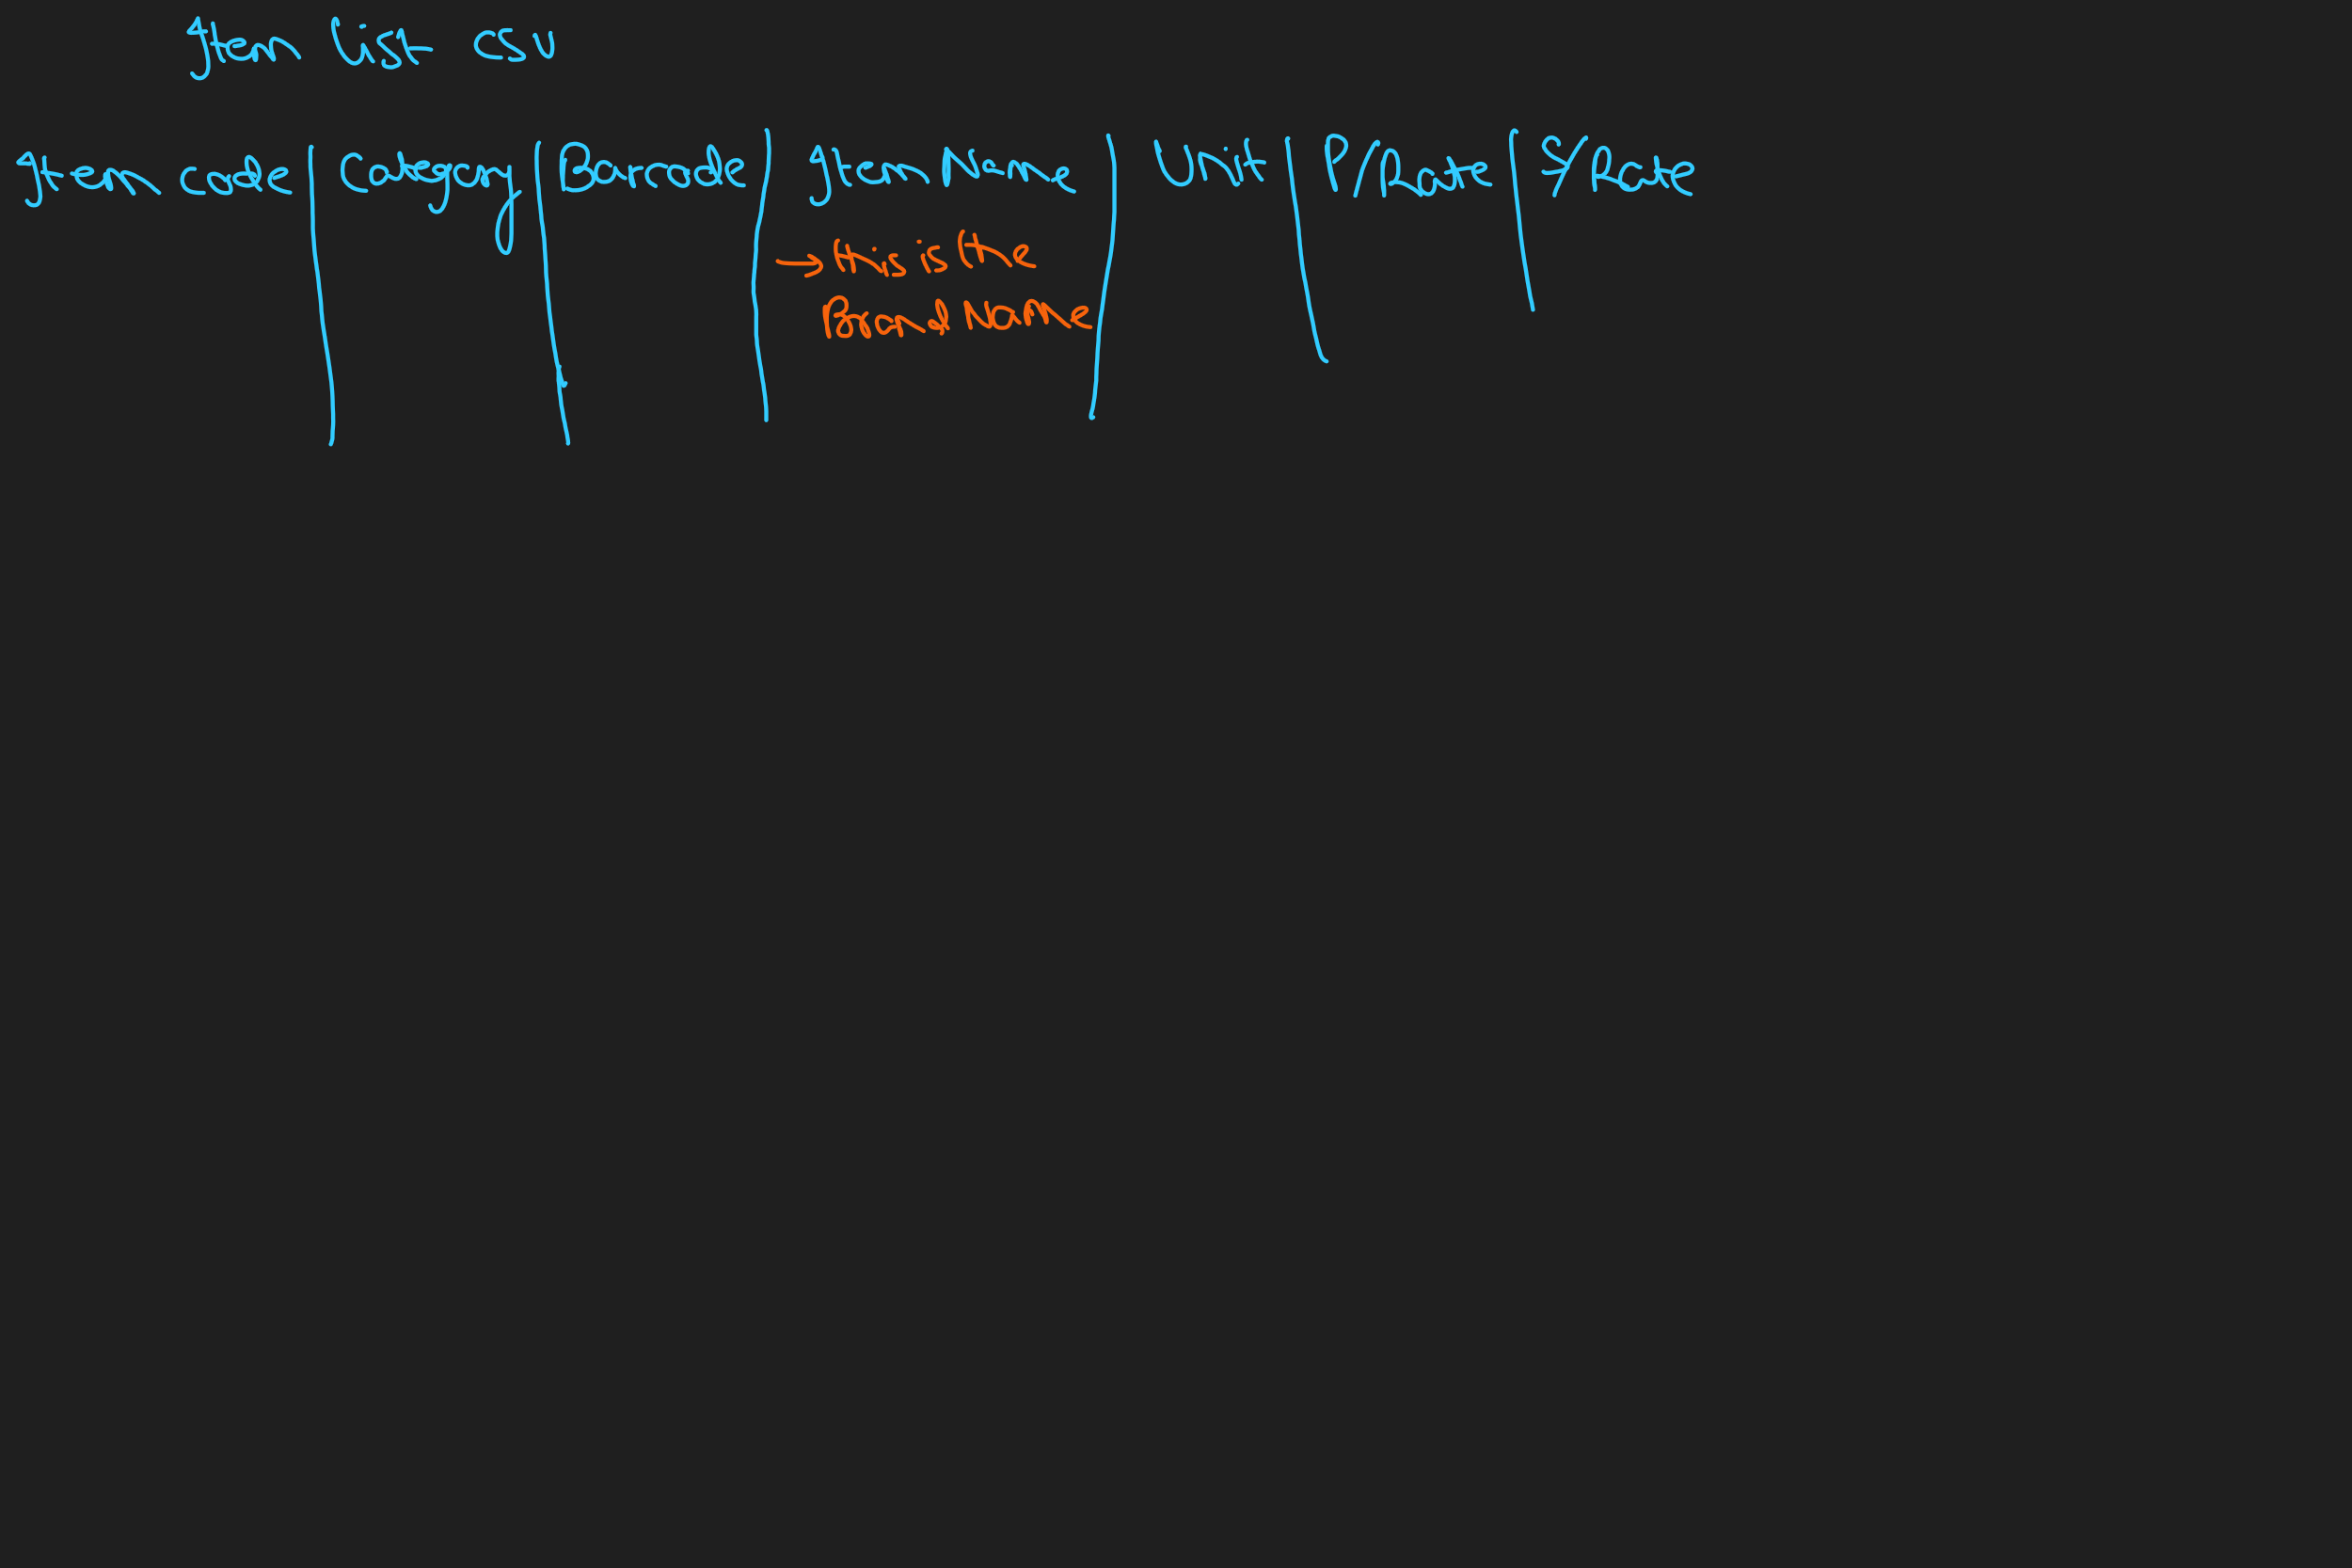 Item list csv
Item code | Category | Barcode | Item Name | Unit | P/Rate | S/Rate
→ this is the
Brand Name